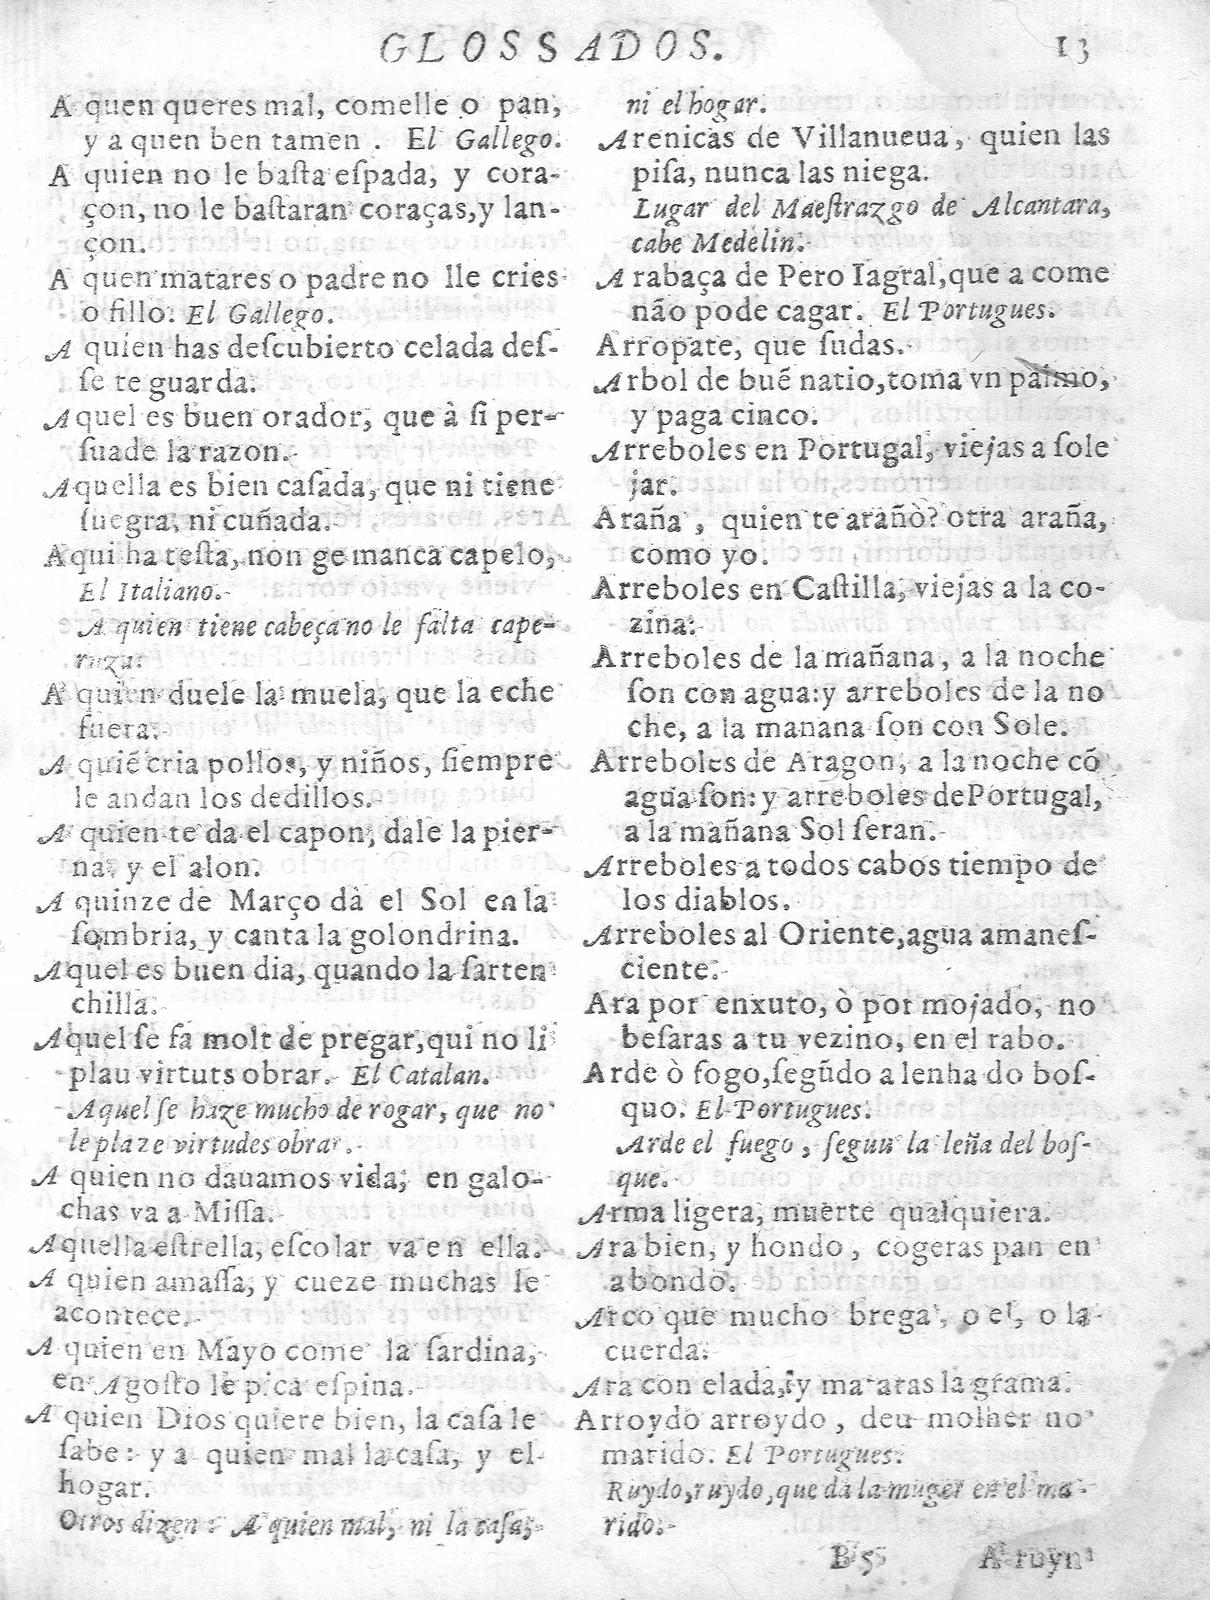 GLOSSADOS. 13
A quen queres mal, comelle o pan,
y a quen ben tamen. El Gallego.
A quien no le baſta eſpada, y cora-
çon, no le baſtaran coraças, y lan-
çon.
A quen matares o padre no lle cries
o fillo. El Gallego.
A quien has deſcubierto celada deſ-
ſe te guarda.
Aquel es buen orador, que à ſi per-
ſuade la razon.
Aquella es bien caſada, que ni tiene
ſuegra, ni cuñada.
Aqui ha teſta, non ge manca capelo,
El Italiano.
A quien tiene cabeça no le falta cape-
ruza.
A quien duele la muela, que la eche
fuera.
A quiẽ cria pollos, y niños, ſiempre
le andan los dedillos.
A quien te da el capon, dale la pier-
na, y el alon.
A quinze de Março dà el Sol en la
ſombria, y canta la golondrina.
Aquel es buen dia, quando la ſarten
chilla.
Aquel ſe fa molt de pregar, qui no li
plau virtuts obrar. El Catalan.
Aquel ſe haze mucho de rogar, que no
le plaze virtudes obrar.
A quien no dauamos vida, en galo-
chas va a Miſſa.
Aquella eſtrella, eſcolar va en ella.
A quien amaſſa, y cueze muchas le
acontece.
A quien en Mayo come la ſardina,
en Agoſto le pica eſpina.
A quien Dios quiere bien, la caſa le
ſabe: y a quien mal la caſa, y el
hogar.
Otros dizen: A quien mal, ni la caſa,
ni el hogar.
Arenicas de Villanueua, quien las
piſa, nunca las niega.
Lugar del Maeſtrazgo de Alcantara,
cabe Medelin.
A rabaça de Pero Iagral, que a come
não pode cagar. El Portugues.
Arropate, que ſudas.
Arbol de buẽ natio, toma vn palmo,
y paga cinco.
Arreboles en Portugal, viejas a ſole
jar.
Araña, quien te arañò? otra araña,
como yo.
Arreboles en Caſtilla, viejas a la co-
zina.
Arreboles de la mañana, a la noche
ſon con agua: y arreboles de la no
che, a la manana ſon con Sole.
Arreboles de Aragon, a la noche cõ
agua ſon: y arreboles de Portugal,
a la mañana Sol ſeran.
Arreboles a todos cabos tiempo de
los diablos.
Arreboles al Oriente, agua amaneſ-
ciente.
Ara por enxuto, ò por mojado, no
beſaras a tu vezino, en el rabo.
Arde ò fogo, ſegũdo a lenha do boſ-
quo. El Portugues.
Arde el fuego, ſegun la leña del boſ-
que.
Arma ligera, muerte qualquiera.
Ara bien, y hondo, cogeras pan en
abondo.
Arco que mucho brega, o el, o la
cuerda.
Ara con elada, y mataras la grama.
Arroydo arroydo, deu molher no
marido. El Portugues.
Ruydo, ruydo, que da la muger en el ma-
rido.
B 5 A ruyn